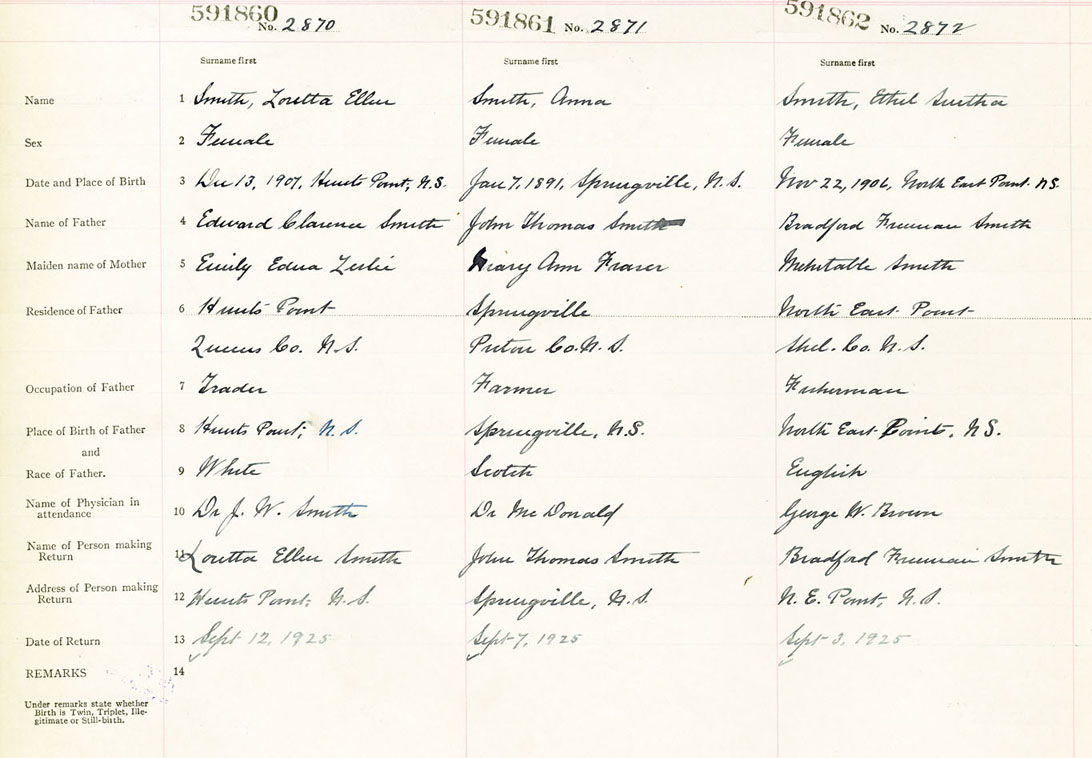 591860 No. 2870 591861 No. 2871 591862 No. 2872
Surname first Surname first Surname first
Name 1 Smith, Loretta Ellen Smith, Anna Smith, Ethel
Sex 2 Female Female Female
Date and Place of Birth 3 Dec 13, 1907, Hunts Point, N.S. Jan 7, 1891, Springville, N.S. Nov 22, 1906, North East Point N.S.
Name of Father 4 Edward Clarence Smith John Thomas Smith Bradford Freeman Smith
Maiden name of Mother 5 Emily Edna Leslie Mary Ann Fraser Mehitable Smith
Residence of Father 6 Hunts Point Springville North East Point
Queens Co. N.S. Pictou Co. N.S. Shel. Co. N.S.
Occupation of Father 7 Trader Farmer Fisherman
Place of Birth of Father 8 Hunts Point, N.S. Springville, N.S. North East Point, N.S.
and
Race of Father. 9 White Scotch English
Name of Physician in
attendance 10 Dr J. W. Smith Dr McDonald George W. Brown
Name of Person making
Return 11 Loretta Ellen Smith John Thomas Smith Bradford Freeman Smith
Address of Person making
Return 12 Hunts Point, N.S. Springville, N.S. N. E. Point, N.S.
Date of Return 13 Sept 12, 1925 Sept 7, 1925 Sept 3, 1925
REMARKS 14
Under remarks state whether
Birth is Twin, Triplet, Ille-
gitimate or Still-birth.